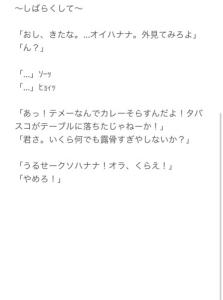 〜しばらくして〜
「おし、きたな。…オイハナナ。外見てみろよ」
「ん？」
「…」ｿｰｯ
「…」ﾋｮｲｯ
「あっ！テメーなんでカレーそらすんだよ！タバ
スコがテーブルに落ちたじゃねーか！」
「君さ。いくら何でも露骨すぎやしないか？」
「うるせークソハナナ！オラ、くらえ！」
「やめろ！」